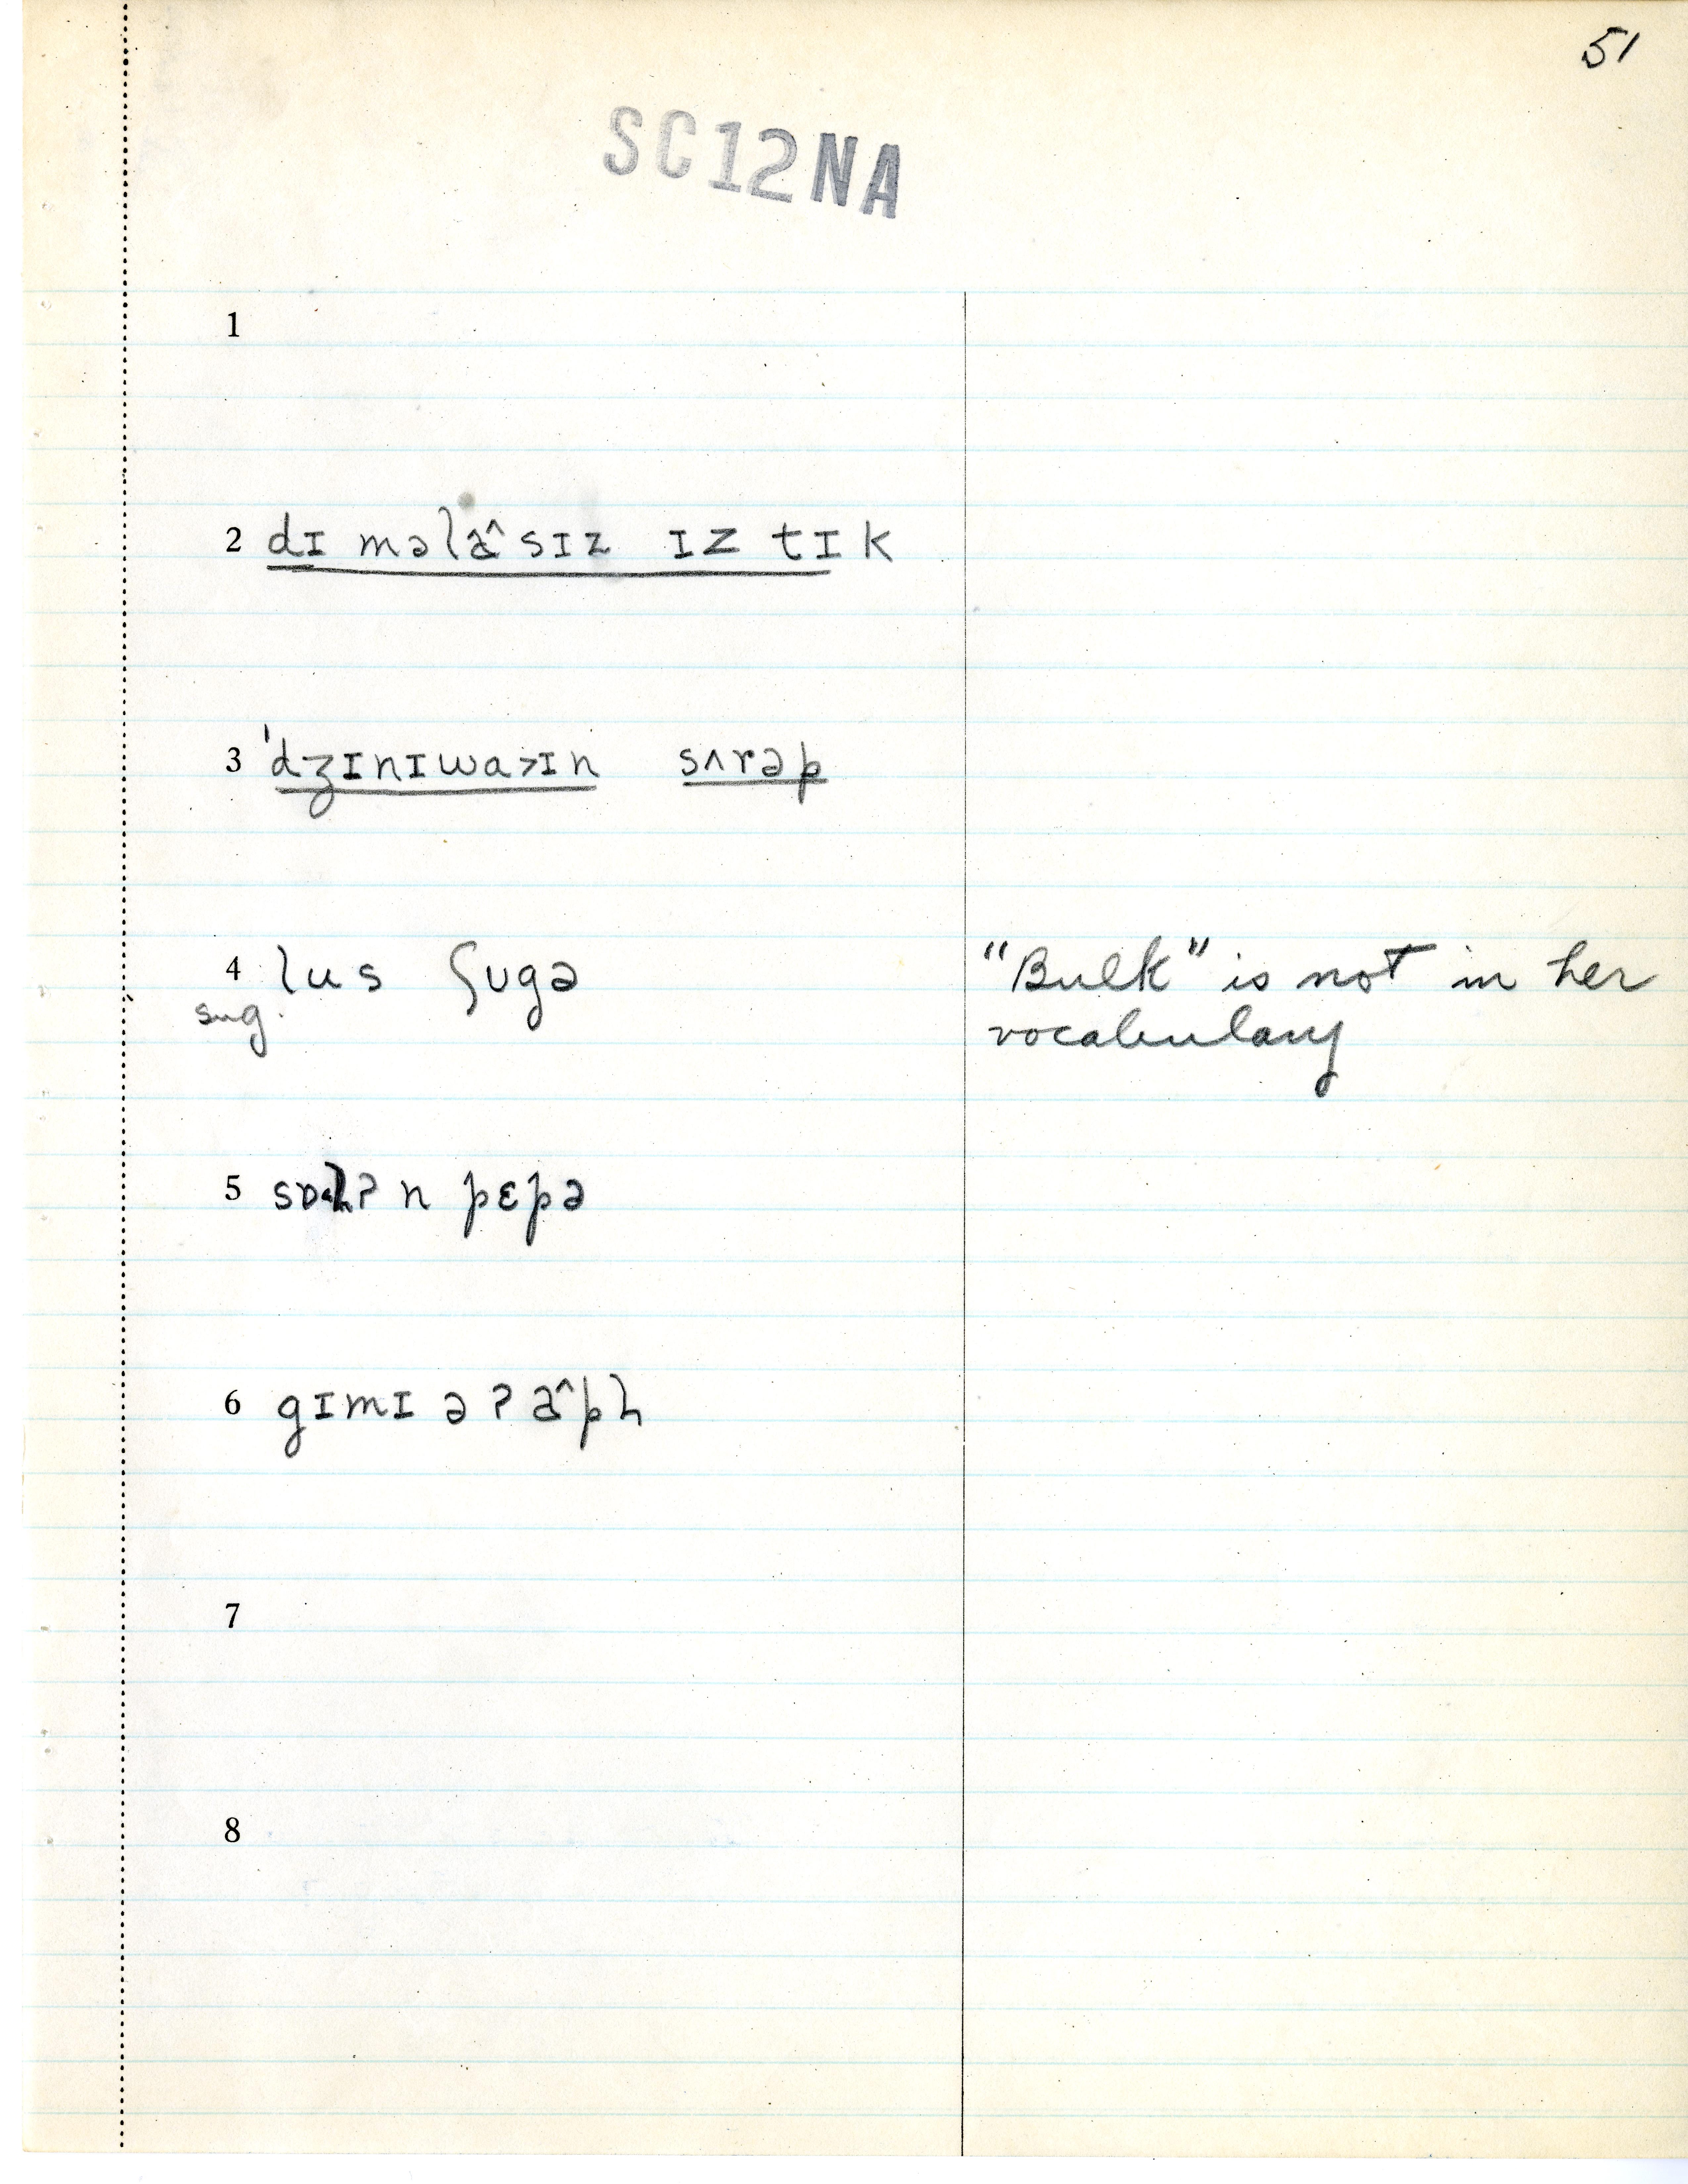 51
SC12NA
1
2 dɪ məlæ^sɪz ɪz tɪk
3 'dʒɪnɪwa>ɪn sʌrəp
4 lus ʃugə
sug.
"Bulk" is not in her
vocabulary
5 n pɛpə
6 gɪmɪ ə ʔ æ^ph
7
8